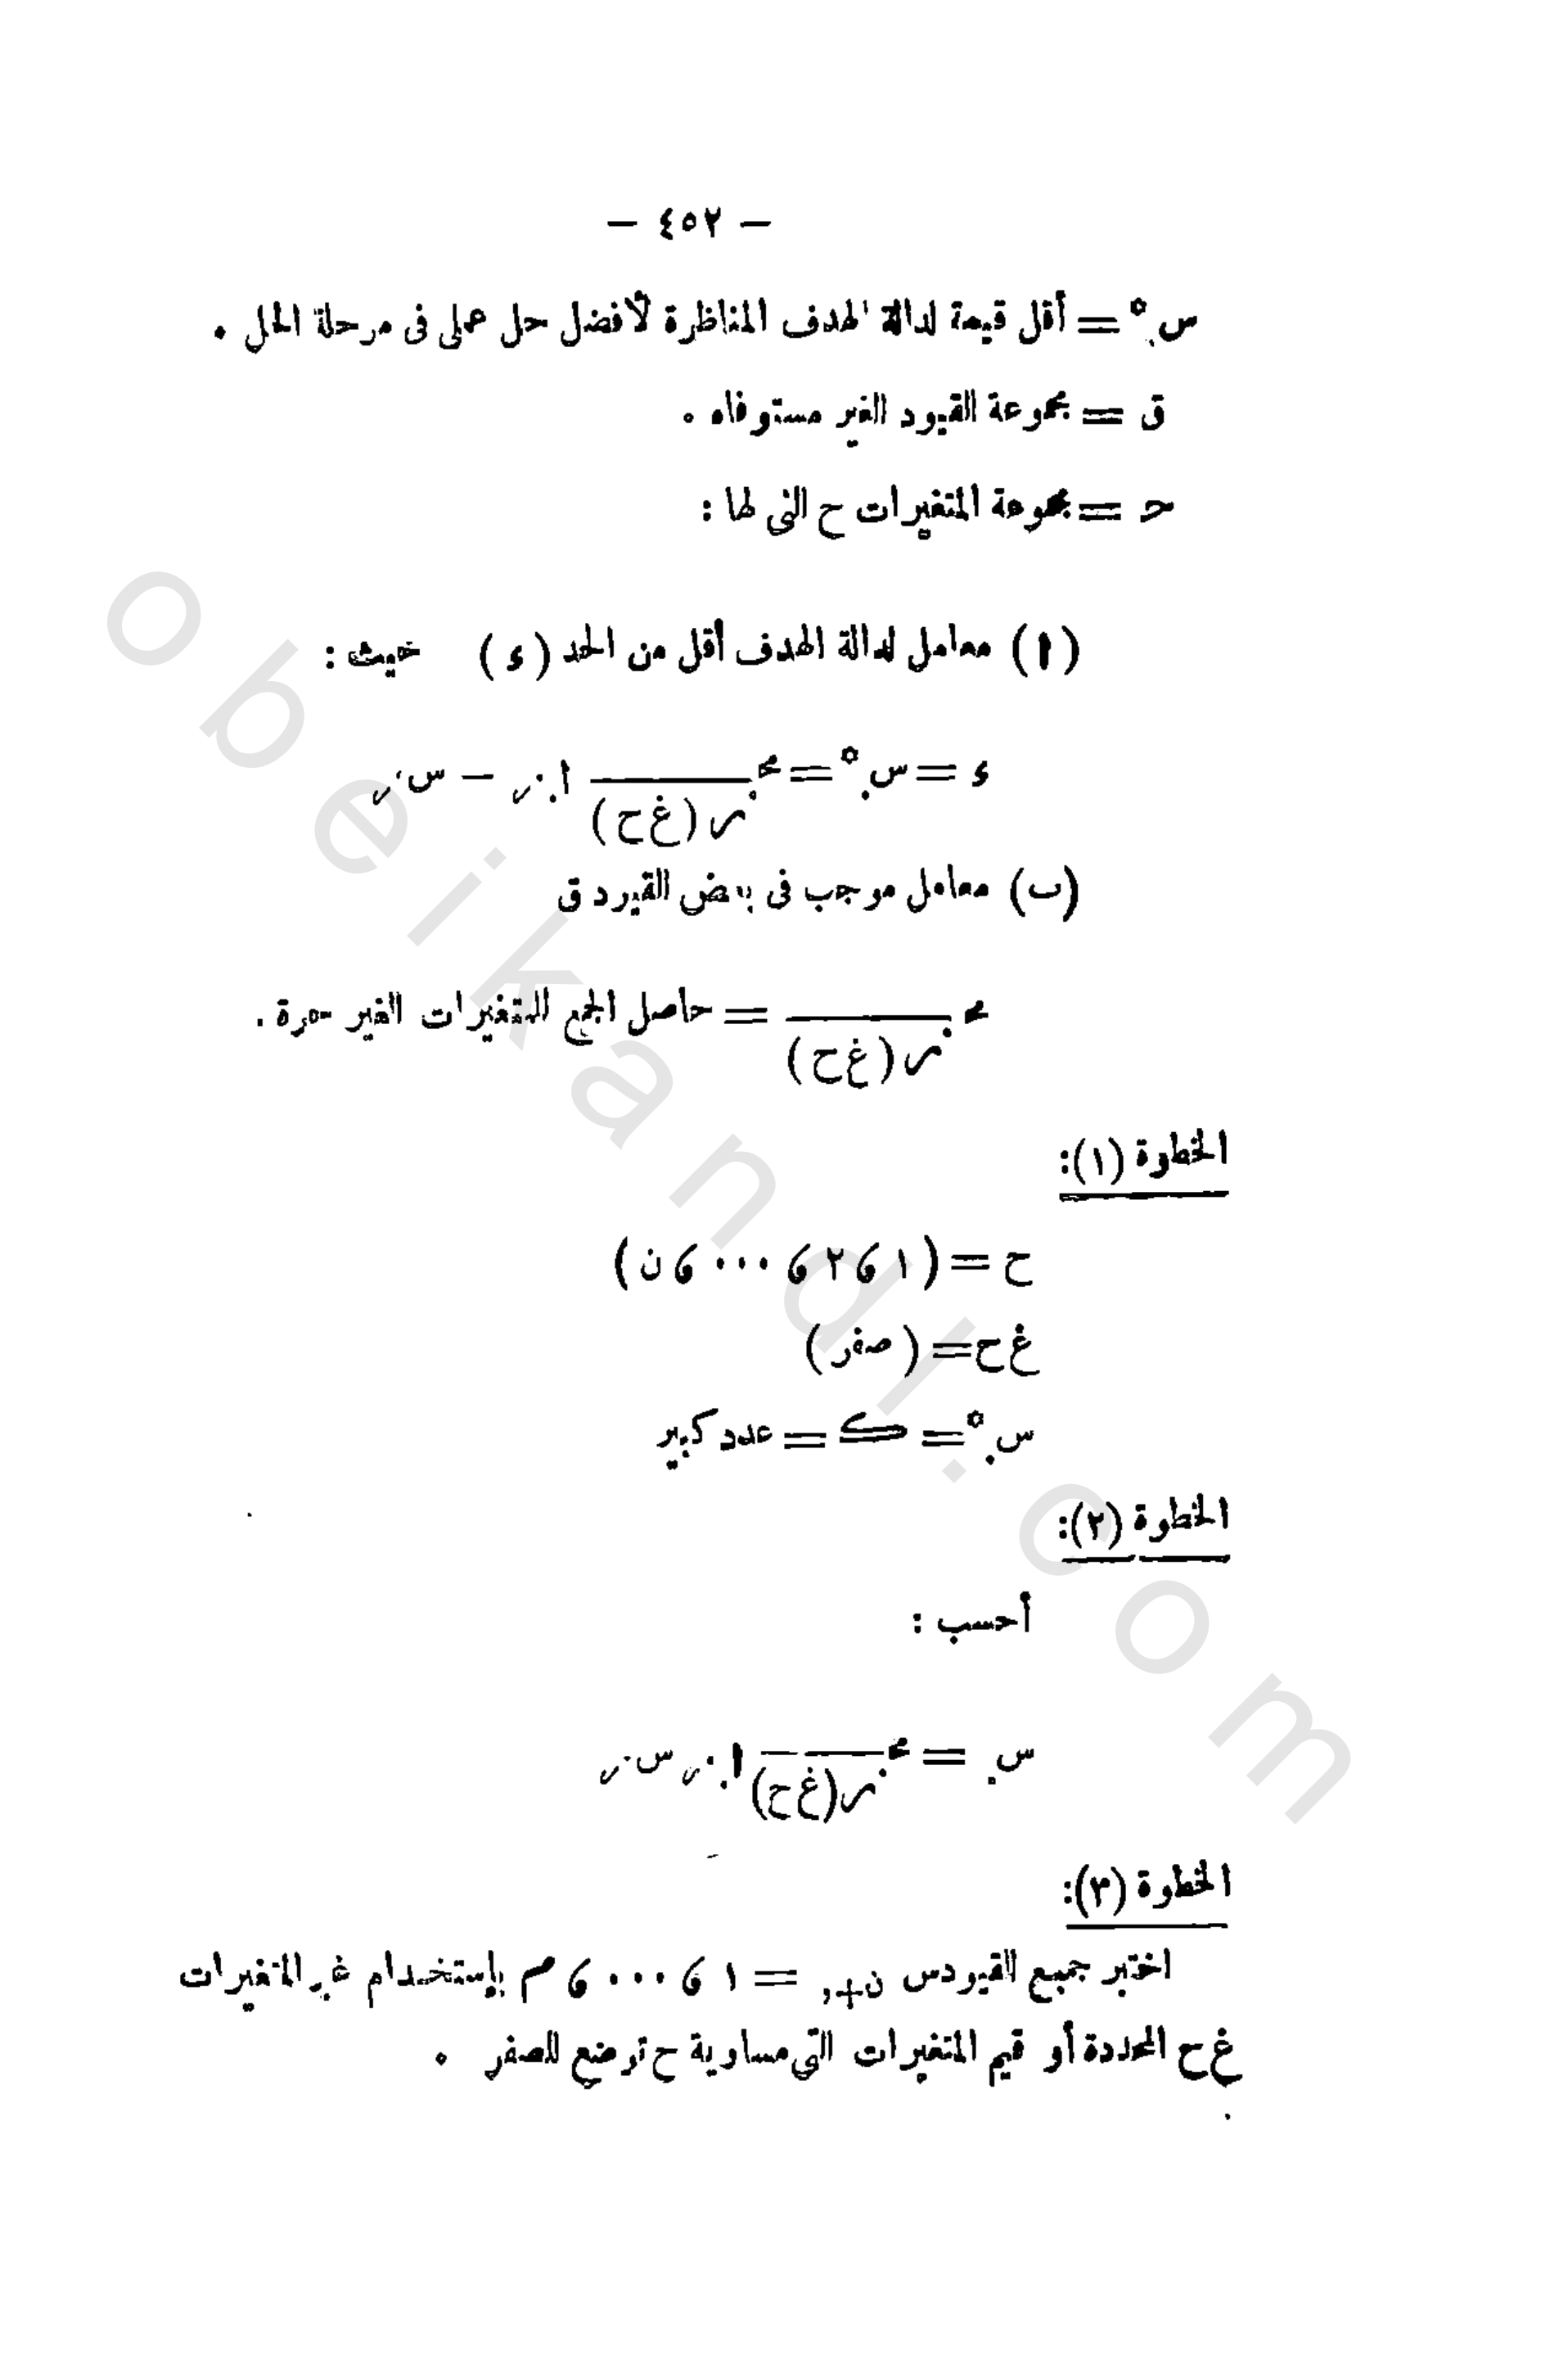 — ٤٥٢ —
س.* = أقل قيمة لدالة الهدف المناظرة لأفضل حل عملى فى مرحلة الحل .
ق = مجموعة القيود الغير مستوفاه .
حـ = مجموعة المتغيرات ح التى لها :
(ا) معامل لدالة الهدف أقل من الحد (ء) حيث :
ء = س.* = محـ ا.ر — سر
ر (غ ح)
(ب) معامل موجب فى بعض القيود ق
محـ = حاصل الجمع للمتغيرات الغير حرة .
ر (غ ح)
الخطوة (١):
ح = (١ ، ٢ ، ... ، ن)
غ ح = ( صفر )
س.* = ك = عدد كبير
الخطوة (٢):
أحسب :
س. = محـ ا.ر سر
ر (غ ح)
الخطوة (٣):
اختبر جميع القيود س ن+ر = ١ ، ... ، م بإستخدام غير المتغيرات
غ ح المحددة أو قيم المتغيرات التى مساوية ح توضع للصفر .
obeikandl.com